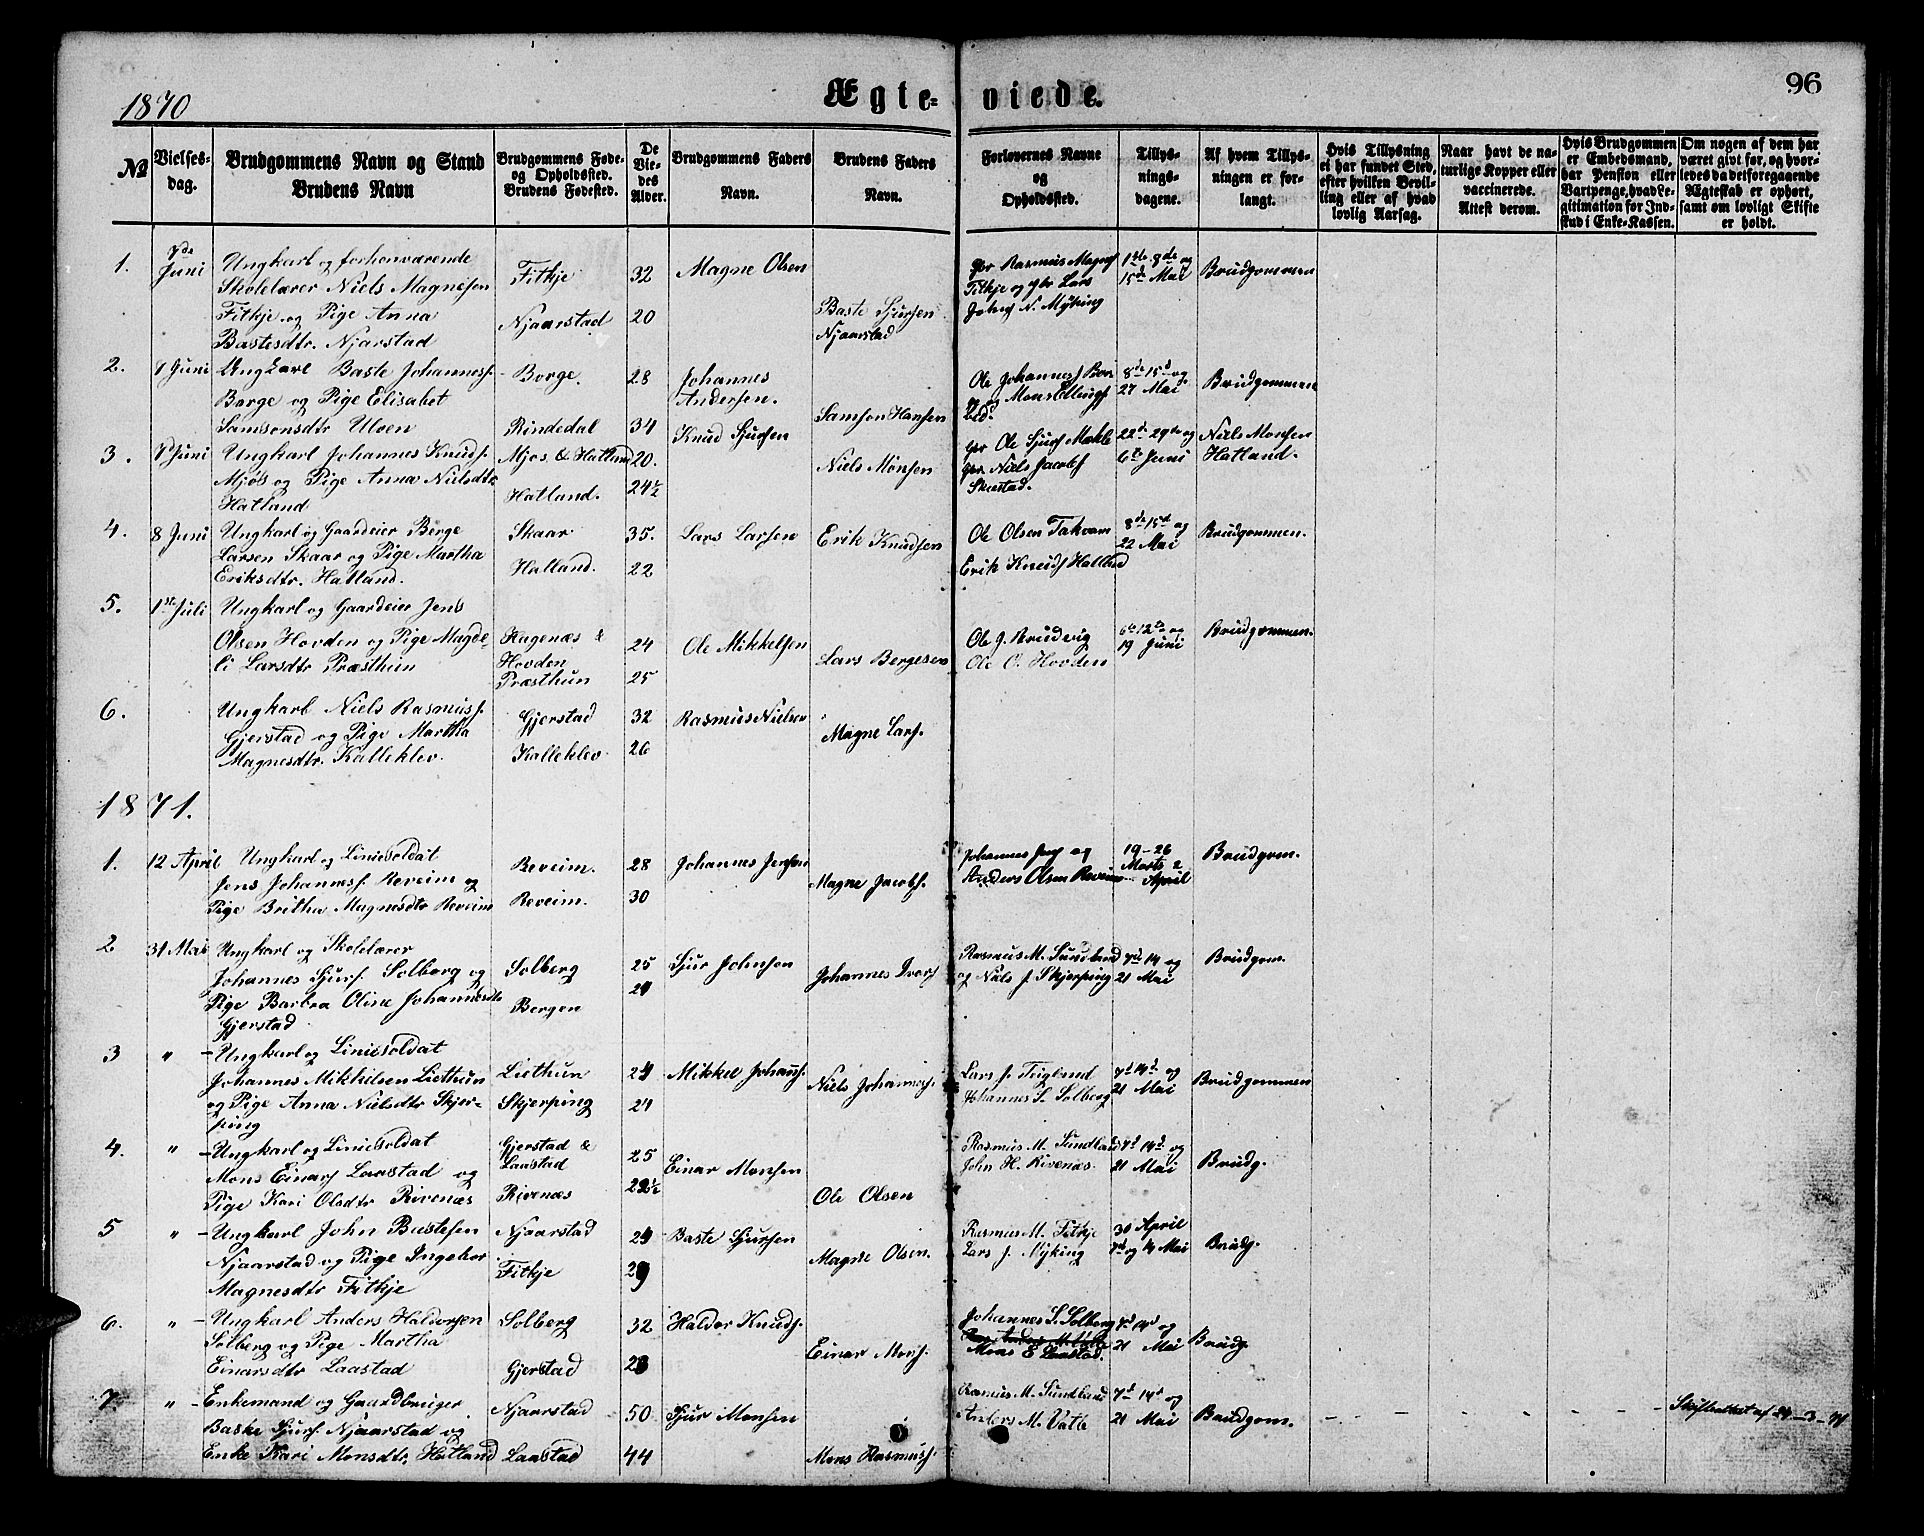 96
1870
Ægte- viede.
№
Vielses-
dag.
Brudgommens Navn og Stand
Brudens Navn
Brudgommens Føde-
og Opholdssted.
Brudens Fødested.
De
Vie-
des
Alder.
Brudgommens Faders
Navn.
Brudens Faders
Navn.
Forlovernes Navne
og
Opholdssted.
Tillys-
nings-
dagene.
Af hvem Tillys-
ningen er for-
langt.
Hvis Tillysning
ei har fundet Sted,
efter hvilken Bevil-
ling eller af hvad
lovlig Aarsag.
Naar havt de na-
turlige Kopper eller
vaccinerede.
Attest derom.
Hvis Brudgommen
er Embedsmand,
har Pension eller
Vartpenge, hvad Le-
gitimation for Ind-
skud i Enke-Kassen.
Om nogen af dem har
været givt før, og hvor-
ledes da det foregaaende
Ægteskab er ophørt,
samt om lovligt Skifte
er holdt.
1.
7de
Juni
Ungkarl og forhenværende
Skolelærer Niels Magnesen
Fitkje og Pige Anna
Bastesdtr. Njarstad
Fitkje
Njaarstad
32
20
Magne Olsen
Baste Sjursen
Njaarstad
Rasmus Magnes
Fitkje og Lars
Johns N. Myking
1ste 8de og
15de Mai
Brudgommen
2.
7 Juni
Ungkarl Baste Johannesf.
Borge og Pige Elisabet
Samsonsdtr Ulven
Borge.
Rindedal
28
34
Johannes
Andersen.
Samson Hansen
Ole Johannesf Bor
og Mons Ellingf
8de 15d og
27 Mai
Brudgommen
3.
7 Juni
Ungkarl Johannes Knudsf.
Mjøs og Pige Anna Nielsdtr
Hatland
Mjøs & Hatland
Hatland.
20.
24½
Knud Sjursen
Niels Monsen
Ole Sjurs Mækle
Niels Jacobs
22de 29de og
6te Juni
Niels Monsen
Hatland.
4.
8 Juni
Ungkarl og Gaardeier Berge
Larsen Skaar og Pige Martha
Eriksdtr. Hatland.
Skaar
Hatland.
35.
22
Lars Larsen
Erik Knudsen
Ole Olsen Takvam
Erik Knudsf Hatland
8de 15de og
22 Mai
Brudgommen.
5.
1ste Juli
Ungkarl og Gaardeier Jens
Olsen Hovden og Pige Magde-
li Larsdtr Præsthun
Hagenæs &
Hovden
Præsthun
24
25
Ole Mikkelsen
Lars Bergesen
Ole J. Bruvig
Ole O. Hovden
6te 12te og
19 Juni
Brudgommen.
6.
Ungkarl Niels Rasmusf.
Gjerstad og Pige Martha
Magnesdtr. Kalleklev.
Gjerstad
Kalleklev.
32
26
Rasmus Nielsen
Magne Larsf.
1871.
1.
12 April
Ungkarl og Liniesoldat
Jens Johannesf. Reveim og
Pige Britha Magnesdtr Reveim
Reveim.
Reveim.
28
30
Johannes Jensen
Magne Jacobsf.
Johannes Jensf og
Anders Olsen Reveim
19–26
Marts 2
April
Brudgom.
2
31 Mai
Ungkarl og Skolelærer
Johannes Sjursf. Solberg og
Pige Barbra Oline Johannesdtr
Gjerstad
Solberg
Bergen
25
24
Sjur Johnsen
Johannes Ivarsf
Rasmus M. Sundland
og Niels J. Skjerping
7de 14 og
21 Mai
Brudgom.
3
" – Ungkarl og Liniesoldat
Johannes Mikkelsen Liethun
og Pige Anna Nielsdtr Skjer-
ping
Liethun
Skjerping
24
24
Mikkel Johansf.
Niels Johannesf.
Lars J. Teigland
Johannes S. Solberg
7d 14d. og
21 Mai
Brudgommen
4.
" – Ungkarl og Liniesoldat
Mons Einarsf Laastad og
Pige Kari Olsdtr Rivenæs
Gjerstad &
Laastad
Rivenæs
25
22½
Einar Monsen
Ole Olsen
Rasmus M. Sundland
John H. Rivenæs.
7d 14d. og
21 Mai
Brudg.
5
" – Ungkarl John Bastesen
Njaarstad og Pige Ingebor
Magnesdtr Fitkje
Njaarstad
Fitkje
24
29
Baste Sjursen
Magne Olsen.
Rasmus M. Fitkje
Lars J. Myking
30 April
7d og 14 Mai
Brudg.
6.
" – Ungkarl Anders Haldorsen
Solberg og Pige Martha
Einarsdtr Laastad
Solberg
Gjerstad
32
23
Haldor Knudsf.
Einar Monsf.
Johannes S. Solberg
Mons E Laastad.
7d 14d og
21 Mai
Brudg.
7.
" – Enkemand og Gaardbruger
Baske Sjursf. Njaarstad og
Enke Kari Monsdtr Hatland
Njaarstad
Laastad
50
44
Sjur Monsen
Mons Rasmusf.
Rasmus M. Sundland
Anders M. Vatle
7d 14d og
21 Mai
Brudgom.
Skifteattest af 24–3–71